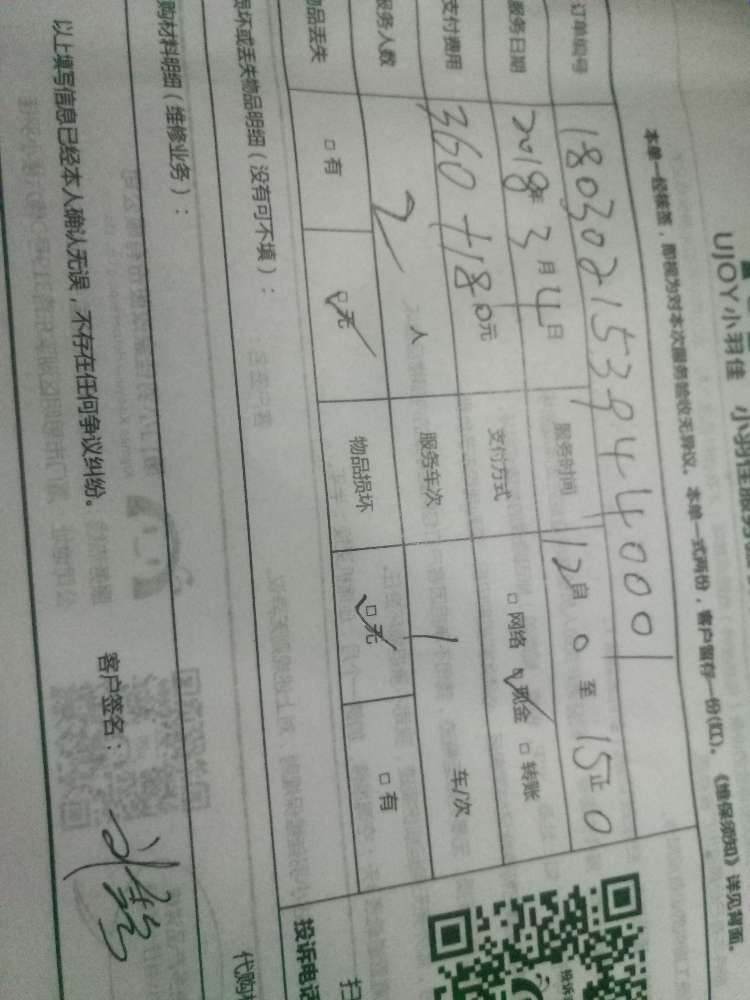 UJOY小羽佳 小羽佳服务
本单一经核签，即视为对本次服务验收无异议。本单一式两份，客户留存一份(红)。《维保须知》详见背面。
订单编号 180302153944000
服务日期 2018年3月4日 服务时间 12自0至15止0
支付费用 360+180元 支付方式 □网络 ☑现金 □转账
服务人数 2人 服务车次 1 车/次
物品丢失 □有 ☑无 物品损坏 ☑无 □有
损坏或丢失物品明细（没有可不填）：
购材料明细（维修业务）：
代购
以上填写信息已经本人确认无误，不存在任何争议纠纷。 客户签名：
投诉电话
扫
投诉